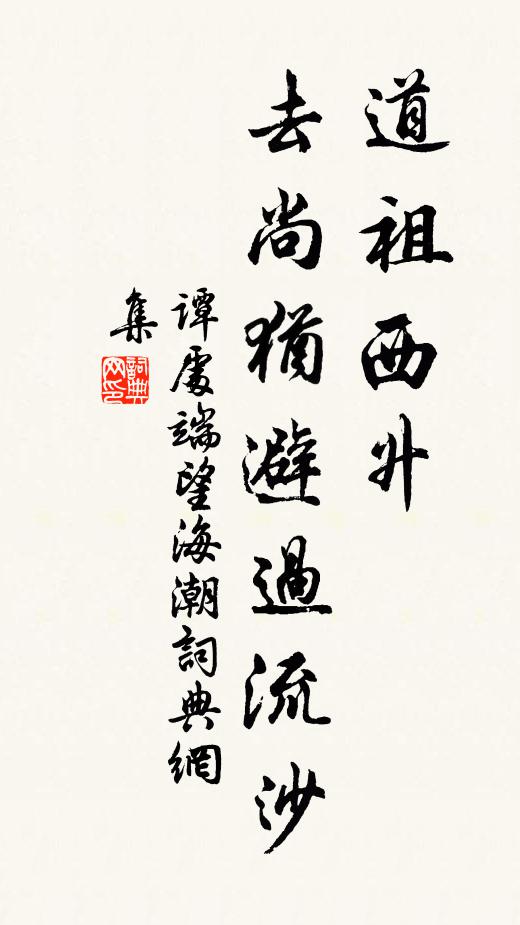 道祖西升
去尚猶避過流沙
譚處端望海潮詞典網
集
詞典
网印